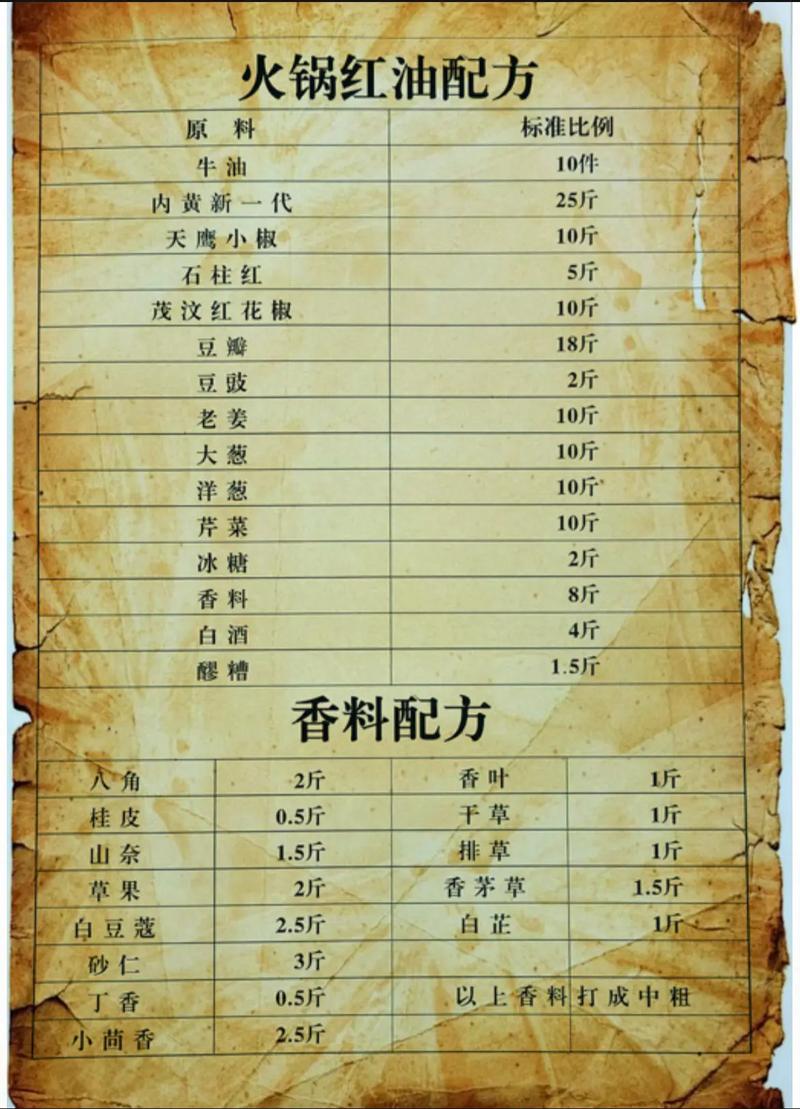 火锅红油配方
原料 标准比例
牛油 10件
内黄新一代 25斤
天鹰小椒 10斤
石柱红 5斤
茂汶红花椒 10斤
豆瓣 18斤
豆豉 2斤
老姜 10斤
大葱 10斤
洋葱 10斤
芹菜 10斤
冰糖 2斤
香料 8斤
白酒 4斤
醪糟 1.5斤
香料配方
八角 2斤 香叶 1斤
桂皮 0.5斤 干草 1斤
山奈 1.5斤 排草 1斤
草果 2斤 香茅草 1.5斤
白豆蔻 2.5斤 白芷 1斤
砂仁 3斤
丁香 0.5斤 以上香料打成中粗
小茴香 2.5斤